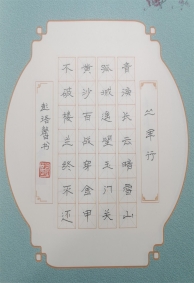 从军行
青海长云暗雪山
孤城遥望玉门关
黄沙百战穿金甲
不破楼兰终不还
彭培馨书